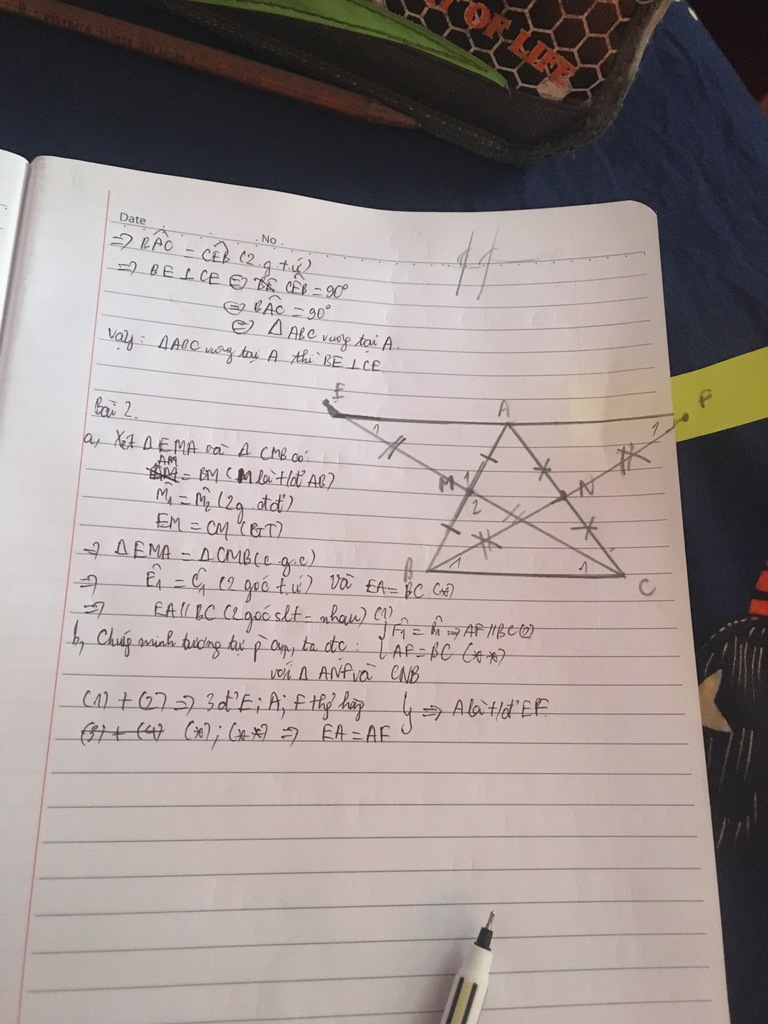 OF LIFE
Date
No.
=> BÂC = CÊB (2 g t ứ)
=> BE ⊥ CE <=> CÊB = 90°
<=> BÂC = 90°
<=> Δ ABC vuông tại A.
Vậy: ΔABC vuông tại A thì BE ⊥ CE
E
A
F
1
1
M
1
2
N
B
1
1
C
Bài 2.
a, Xét Δ EMA và Δ CMB có:
AM = BM (M là t/đ' AB)
M̂1 = M̂2 (2g đđ')
EM = CM (GT)
=> Δ EMA = Δ CMB (c.g.c)
=> Ê1 = Ĉ1 (2 góc t.ứ) Và EA = BC (*)
=> EA // BC (2 góc slt = nhau) (1)
b, Chứng minh tương tự p a, ta đc: { F̂1 = B̂1 => AF // BC (2)
AF = BC (**)
với Δ ANF và CNB
(1) + (2) => 3 đ' E; A; F thg hàng
} => A là t/đ' EF
(3) + (4) (*); (**) => EA = AF